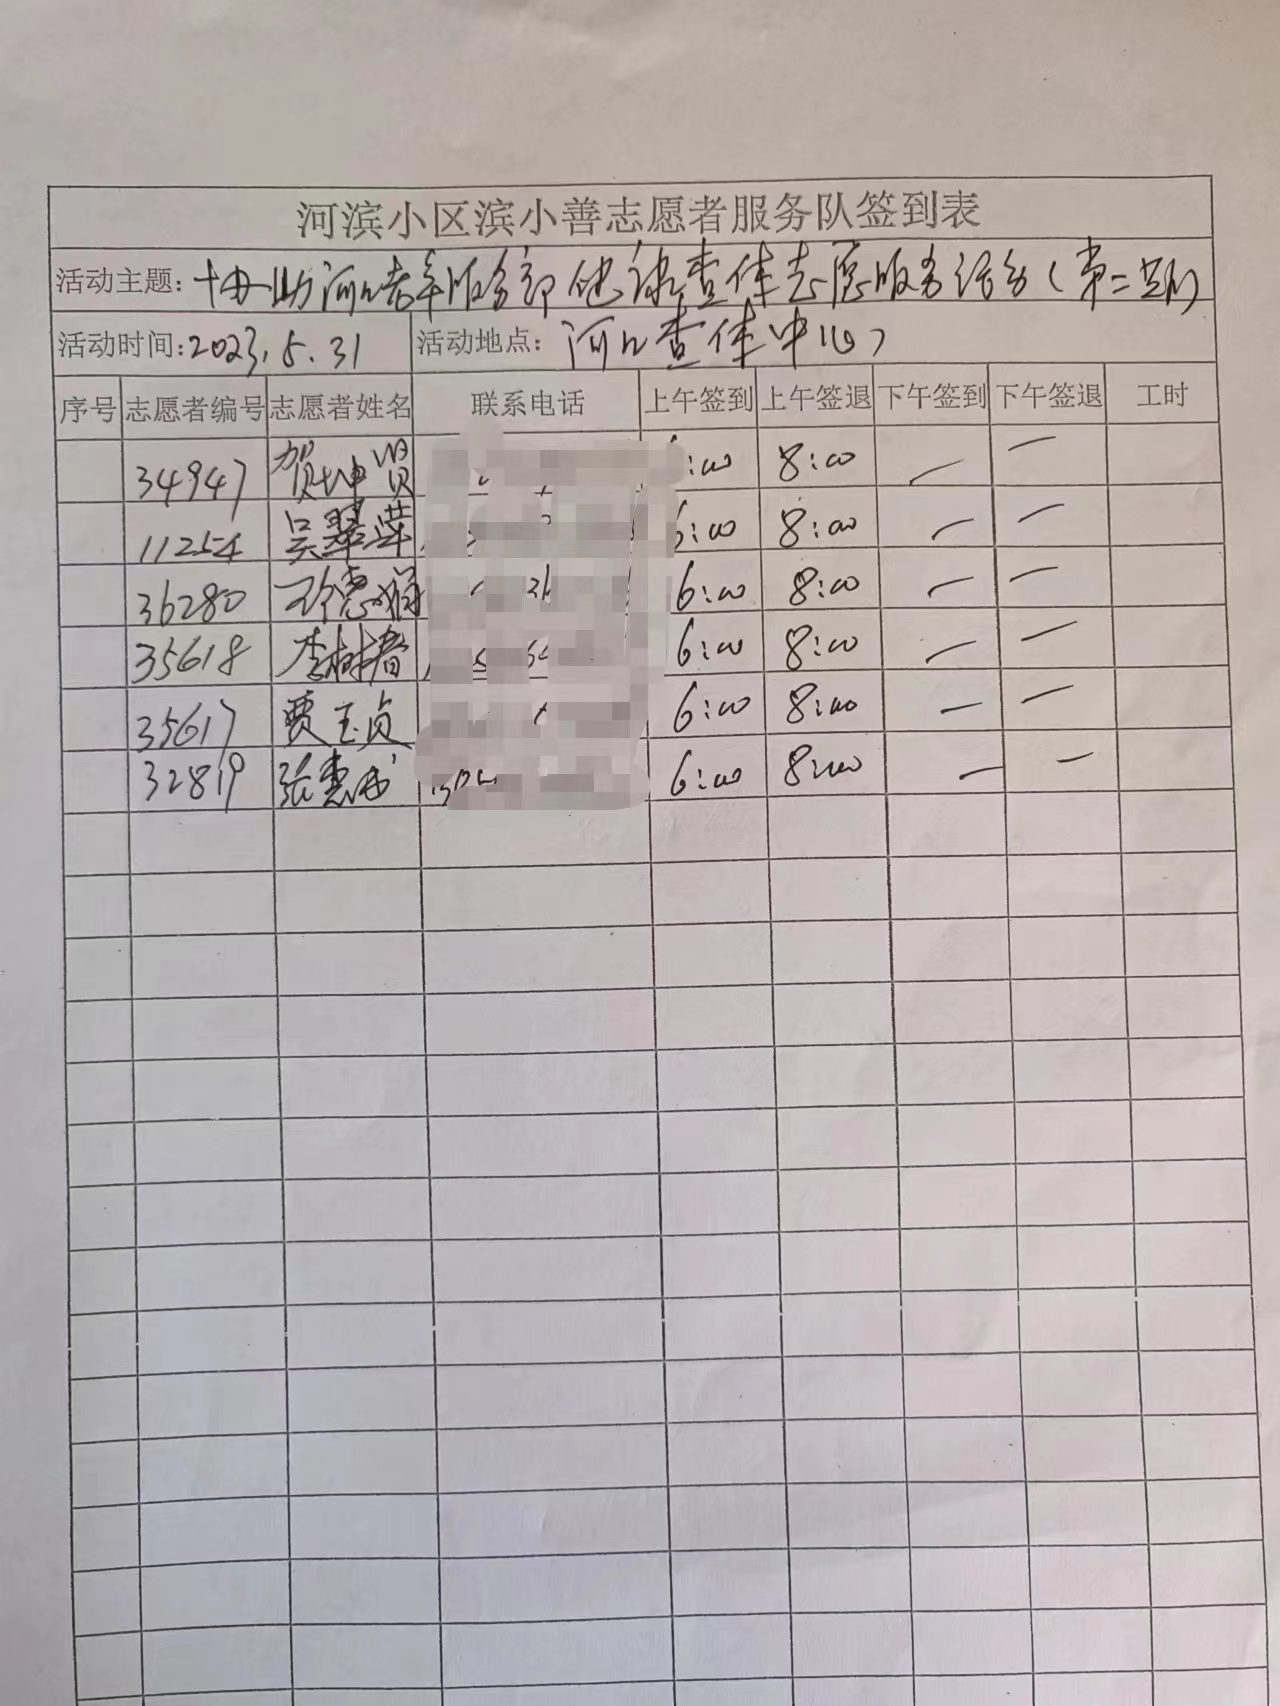 河滨小区滨小善志愿者服务队签到表
活动主题: 协助河口老年服务部健康查体志愿服务活动(第二组)
活动时间: 2023.5.31 活动地点: 河口查体中心
序号 志愿者编号 志愿者姓名 联系电话 上午签到 上午签退 下午签到 下午签退 工时
34947 贺坤贤 :00 8:00 — —
11254 吴翠萍 6:00 8:00 — —
36280 6:00 8:00 — —
35618 李树春 6:00 8:00 — —
35617 贾玉贞 6:00 8:00 — —
32819 张惠 6:00 8:00 — —